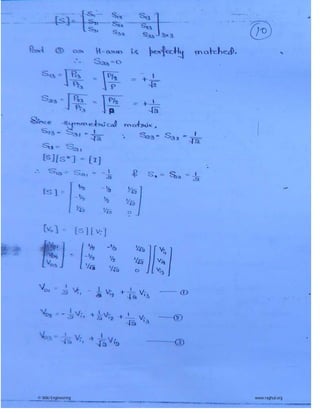 [S] = [ S11 S12 S13
S21 S22 S23
S31 S32 S33 ] 3x3
10
Port ③ or H-arm is perfectly matched.
∴ S33=0
S13 = √(P1/P3) = √(P/2 / P) = +1/√2
S23 = √(P2/P3) = √(P/2 / P) = +1/√2
Since symmetrical matrix.
S13 = S31 = 1/√2 ; S23 = S32 = 1/√2
S12 = S21
[S][S*] = [I]
∴ S12 = S21 = -1/2 & S11 = S22 = 1/2
[S] = [ 1/2 -1/2 1/√2
-1/2 1/2 1/√2
1/√2 1/√2 0 ]
[Vo] = [S][Vi]
[ Vo3 ] = [ 1/2 -1/2 1/√2
-1/2 1/2 1/√2
1/√2 1/√2 0 ] [ Vi1 Vi2 Vi3 ]
Vo1 = 1/2 Vi1 - 1/2 Vi2 + 1/√2 Vi3 —①
Vo2 = -1/2 Vi1 + 1/2 Vi2 + 1/√2 Vi3 —②
Vo3 = 1/√2 Vi1 + 1/√2 Vi2 —③
www.raghul.org